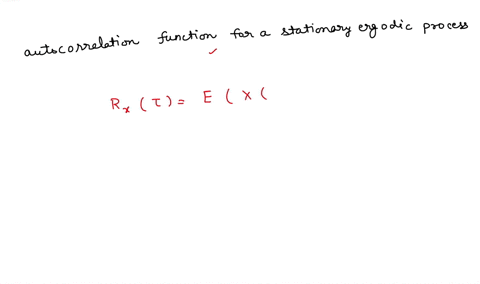 autocorrelation function for a stationary ergodic process
Rx (τ) = E ( X (